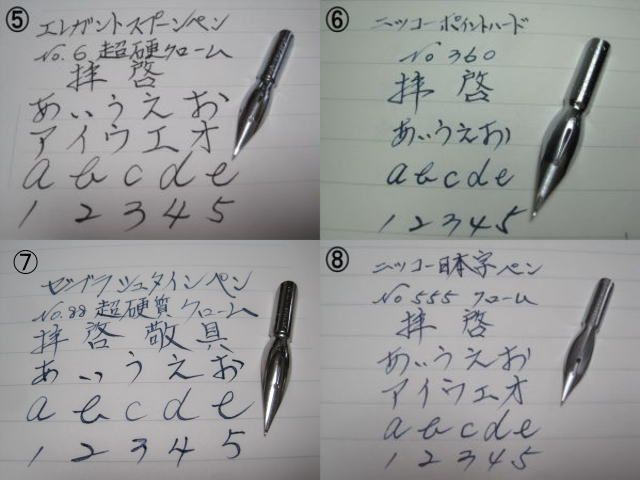 ⑤
エレガントスプーンペン
No.6 超硬クローム
拝啓
あいうえお
アイウエオ
a b c d e
1 2 3 4 5
⑥
ニッコーポイントハード
No 360
拝啓
あいうえお
a b c d e
1 2 3 4 5
⑦
ゼブラシュタインペン
No.88 超硬質クローム
拝啓 敬具
あいうえお
a b c d e
1 2 3 4 5
⑧
ニッコー日本字ペン
No 555 クローム
拝啓
あいうえお
アイウエオ
a b c d e
1 2 3 4 5